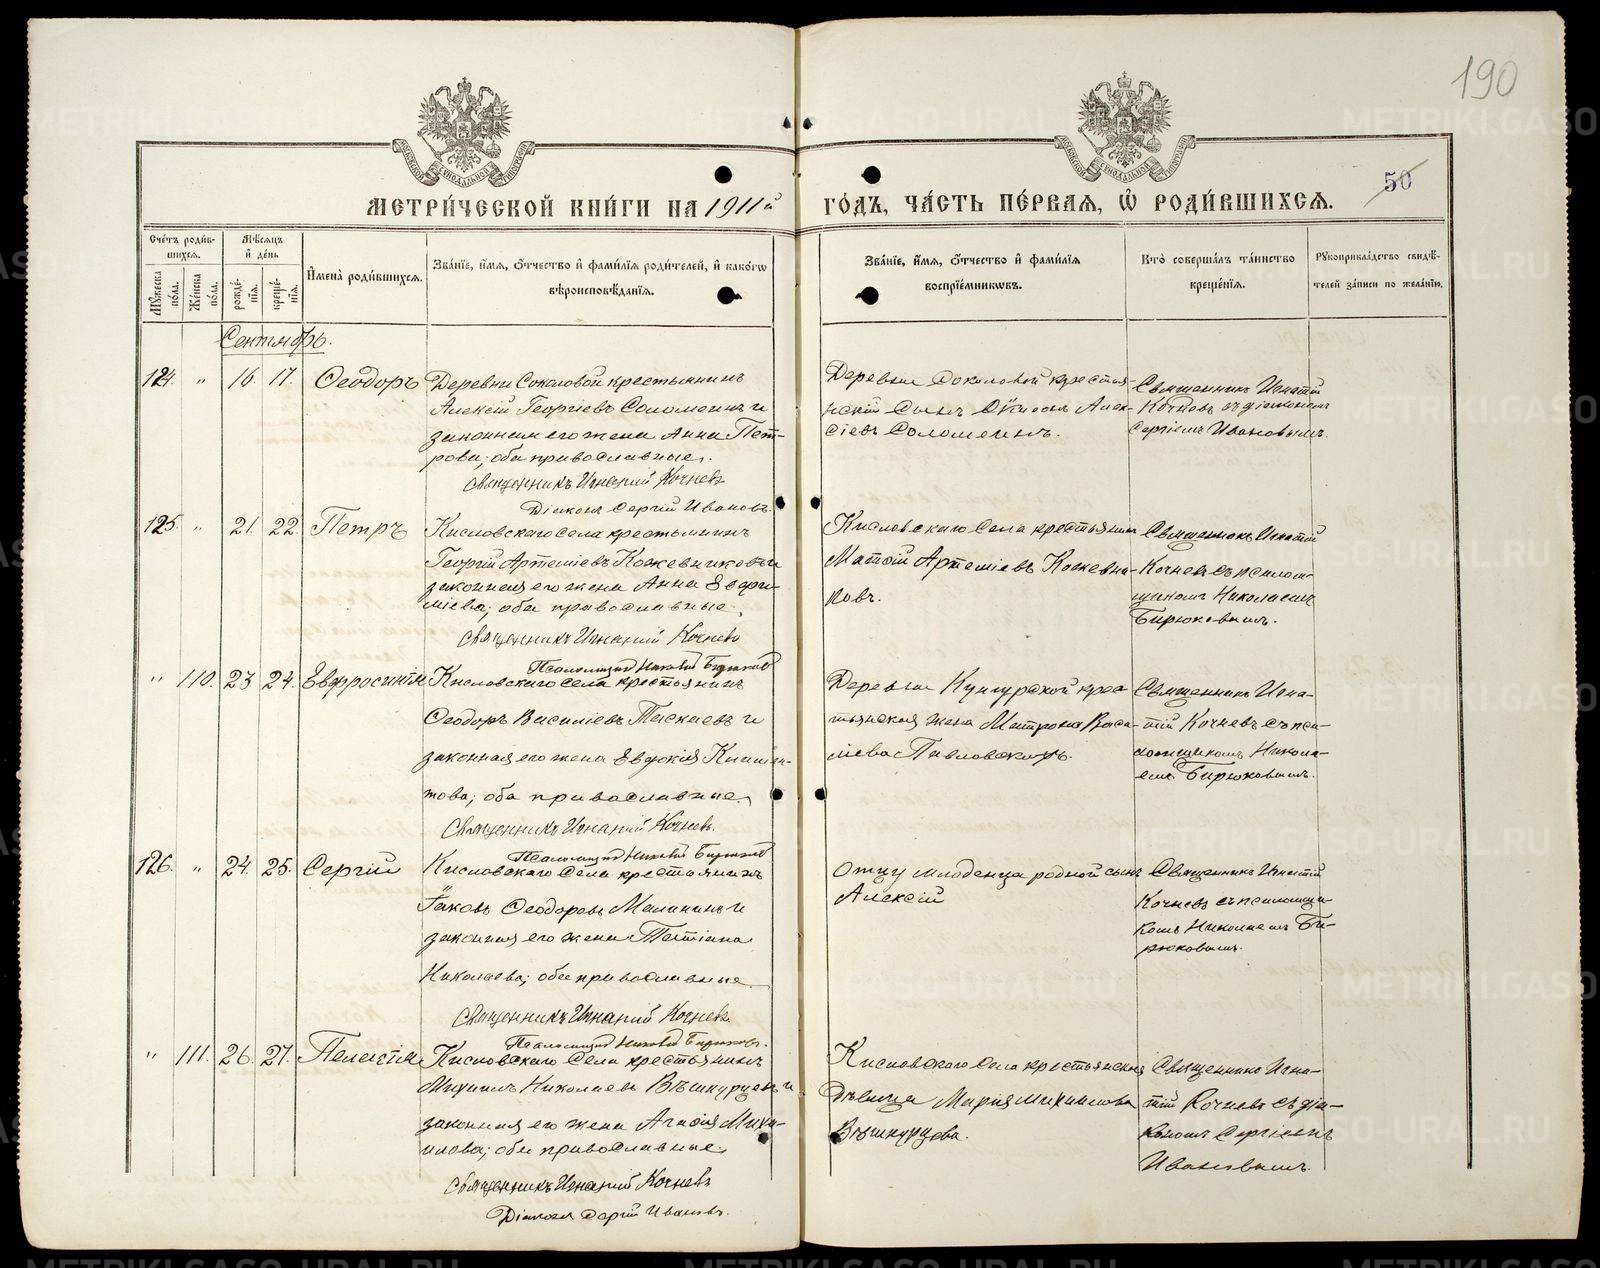 190
50
МЕТРИ́ЧЕСКОЙ КНИ́ГИ НА 1911й ГО́ДЪ, ЧА́СТЬ ПЕ́РВАЯ, Ѡ҆ РОДИ́ВШИХСЯ.
Сче́тъ роди́в-
шихся.
Мѣ́сяцъ
и҆ де́нь
Му́жеска
по́ла.
Же́нска
по́ла.
рожде́-
нїя.
креще́-
нїя.
И҆мена̀ роди́вшихся.
Зва́нїе, и҆́мя, ѻ҆́тчество и҆ фами́лїя роди́телей, и҆ како́гѡ
вѣроисповѣ́данїя.
Зва́нїе, и҆́мя, ѻ҆́тчество и҆ фами́лїя
воспрїе́мникѡвъ.
Кто̀ соверша́лъ та́инство
креще́нїя.
Рукоприкла́дство свидѣ́-
телей за́писи по жела́нїю.
Сентябрь.
124. " 16. 17. Ѳеодоръ
Деревни Соколовой крестьянинъ
Алексій Георгіевъ Соломеинъ и
законная его жена Анна Пет-
рова; оба православные.
Священникъ Игнатій Кочневъ
Діаконъ Сергій Ивановъ.
Деревни Соколовой крестья-
нскій сынъ Алек-
сіевъ Соломеинъ.
Священникъ Игнатій
Кочневъ съ діакономъ
Сергіемъ Ивановымъ.
125. " 21. 22. Петръ
Кисловскаго села крестьянинъ
Георгій Артеміевъ Кожевниковъ и
законная его жена Анна Евфи-
міева; оба православные.
Священникъ Игнатій Кочневъ
Псаломщикъ Николай Бирюковъ
Кисловскаго села крестьянинъ
Матѳій Артеміевъ Кожевни-
ковъ.
Священникъ Игнатій
Кочневъ съ псалом-
щикомъ Николаемъ
Бирюковымъ.
" 110. 23 24. Евфросинія
Кисловскаго села крестьянинъ
Ѳеодоръ Василіевъ Пискаевъ и
законная его жена Евдокія Климен-
това; оба православные.
Священникъ Игнатій Кочневъ.
Псаломщикъ Николай Бирюковъ
Деревни Кунгурской крес
тьянская жена Матрона Васи-
ліева Павловскихъ.
Священникъ Игна-
тій Кочневъ съ пса-
ломщикомъ Никола-
емъ Бирюковымъ.
126. " 24. 25. Сергій
Кисловскаго села крестьянинъ
Іаковъ Ѳеодоровъ Малининъ и
законная его жена Татіана
Николаева; оба православные.
Священникъ Игнатій Кочневъ.
Псаломщикъ Николай Бирюковъ.
Отцу младенца родной сынъ
Алексій
Священникъ Игнатій
Кочневъ съ псаломщи-
комъ Николаемъ Би-
рюковымъ.
" 111. 26. 27. Пелагія
Кисловскаго села крестьянинъ
Михаилъ Николаевъ Вѣшкурцевъ и
законная его жена Агафія Миха-
илова; оба православные.
Священникъ Игнатій Кочневъ
Діаконъ Сергій Ивановъ.
Кисловского села крестьянская
Дѣвица Марія Михаилова
Вѣшкурцева.
Священникъ Игна-
тій Кочневъ съ діа-
кономъ Сергіемъ
Ивановымъ.
METRIKI.GASO-URAL.RU